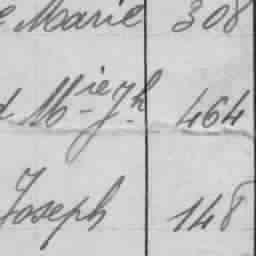 e Marie 308
d Mie Jh 464
Joseph 148